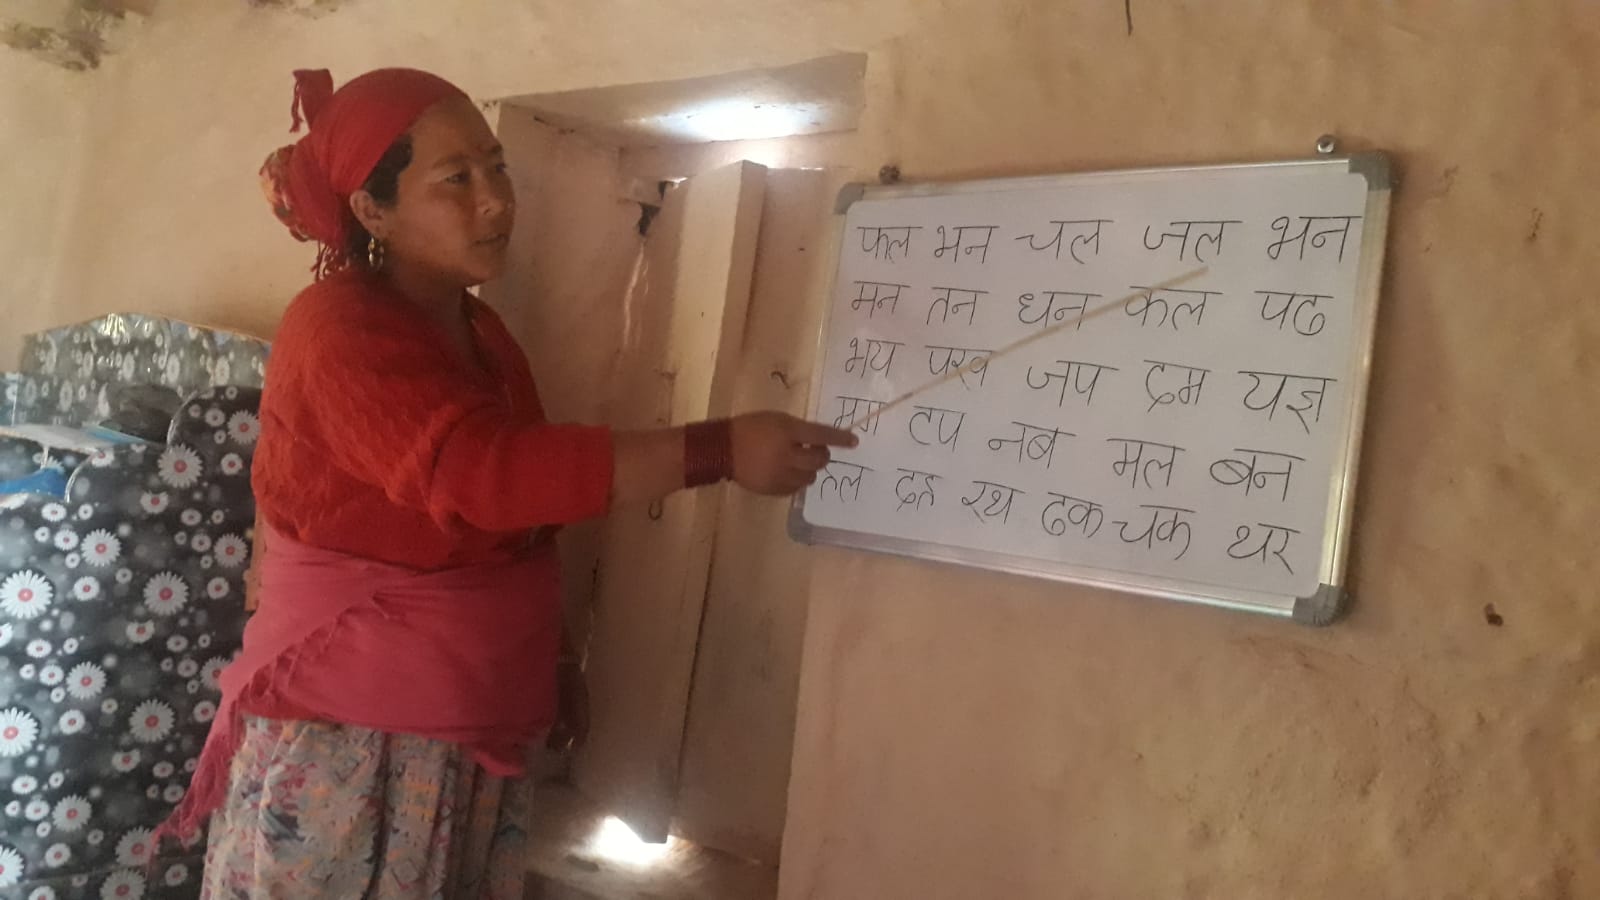 फल भन चल जल भन
मन तन धन कल पढ
भय पख जप दम यज्ञ
मम टप नब मल बन
हल दह रथ ढक चक थर